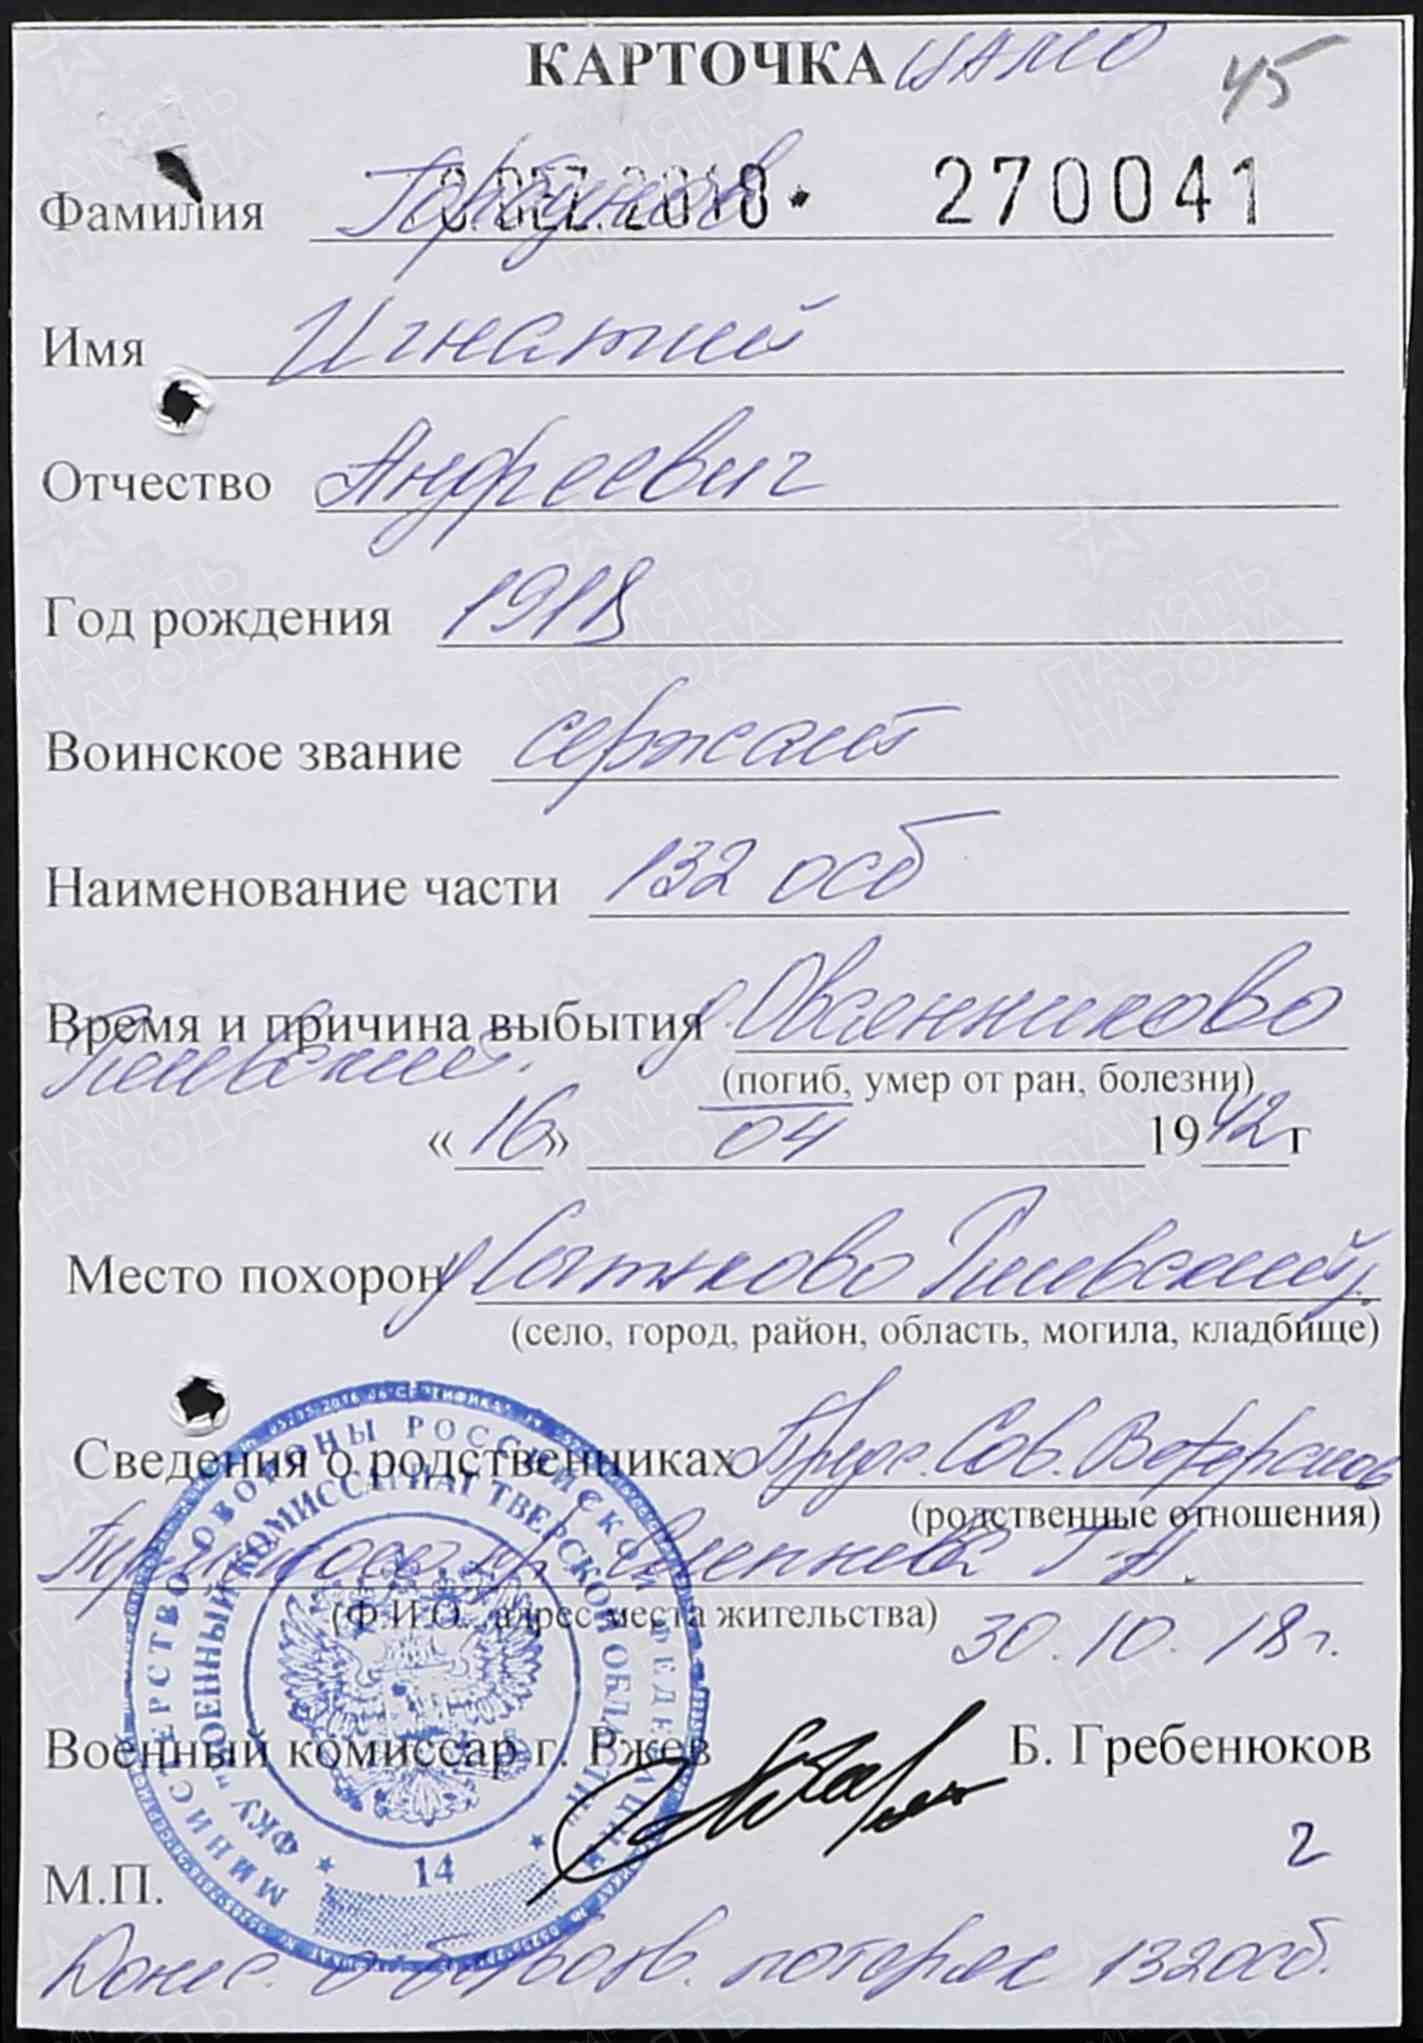 КАРТОЧКА ЦАМО 45
Фамилия Горбунов DEZ.2018 270041
Имя Игнатий
Отчество Андреевич
Год рождения 1918
Воинское звание сержант
Наименование части 132 осб
Время и причина выбытия д. Овсянниково
(погиб, умер от ран, болезни)
«16» 04 1942 г
Место похорон д
(село, город, район, область, могила, кладбище)
Сведения о родственниках Сов. Ветеранов
(родственные отношения)
Г.А.
(Ф.И.О., адрес места жительства)
30.10.18г.
Военный комиссар г. Ржев Б. Гребенюков
2
М.П.
Донес. о безвозв. потерях 132 осб.
МИНИСТЕРСТВО ОБОРОНЫ РОССИЙСКОЙ ФЕДЕРАЦИИ
ФКУ "ВОЕННЫЙ КОМИССАРИАТ ТВЕРСКОЙ ОБЛАСТИ"
14
ПАМЯТЬ
НАРОДА